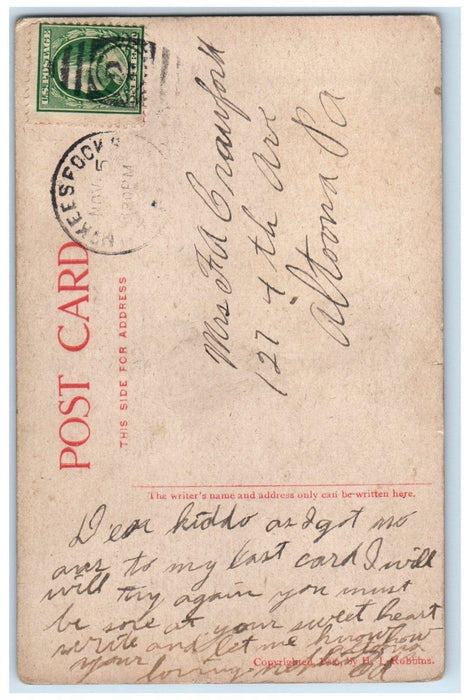 U.S. POSTAGE
McKEES ROCKS
NOV 5
30 PM
POST CARD
THIS SIDE FOR ADDRESS
Mrs Fd Crawford
127 4th Ave
Altoona Pa
The writer's name and address only can be written here.
Dear kiddo as I got no
ans to my last card I will
will try again you must
be sore at your sweet heart
write and let me know how
your
loving Ed
Copyrighted, by H. I. Robbins.